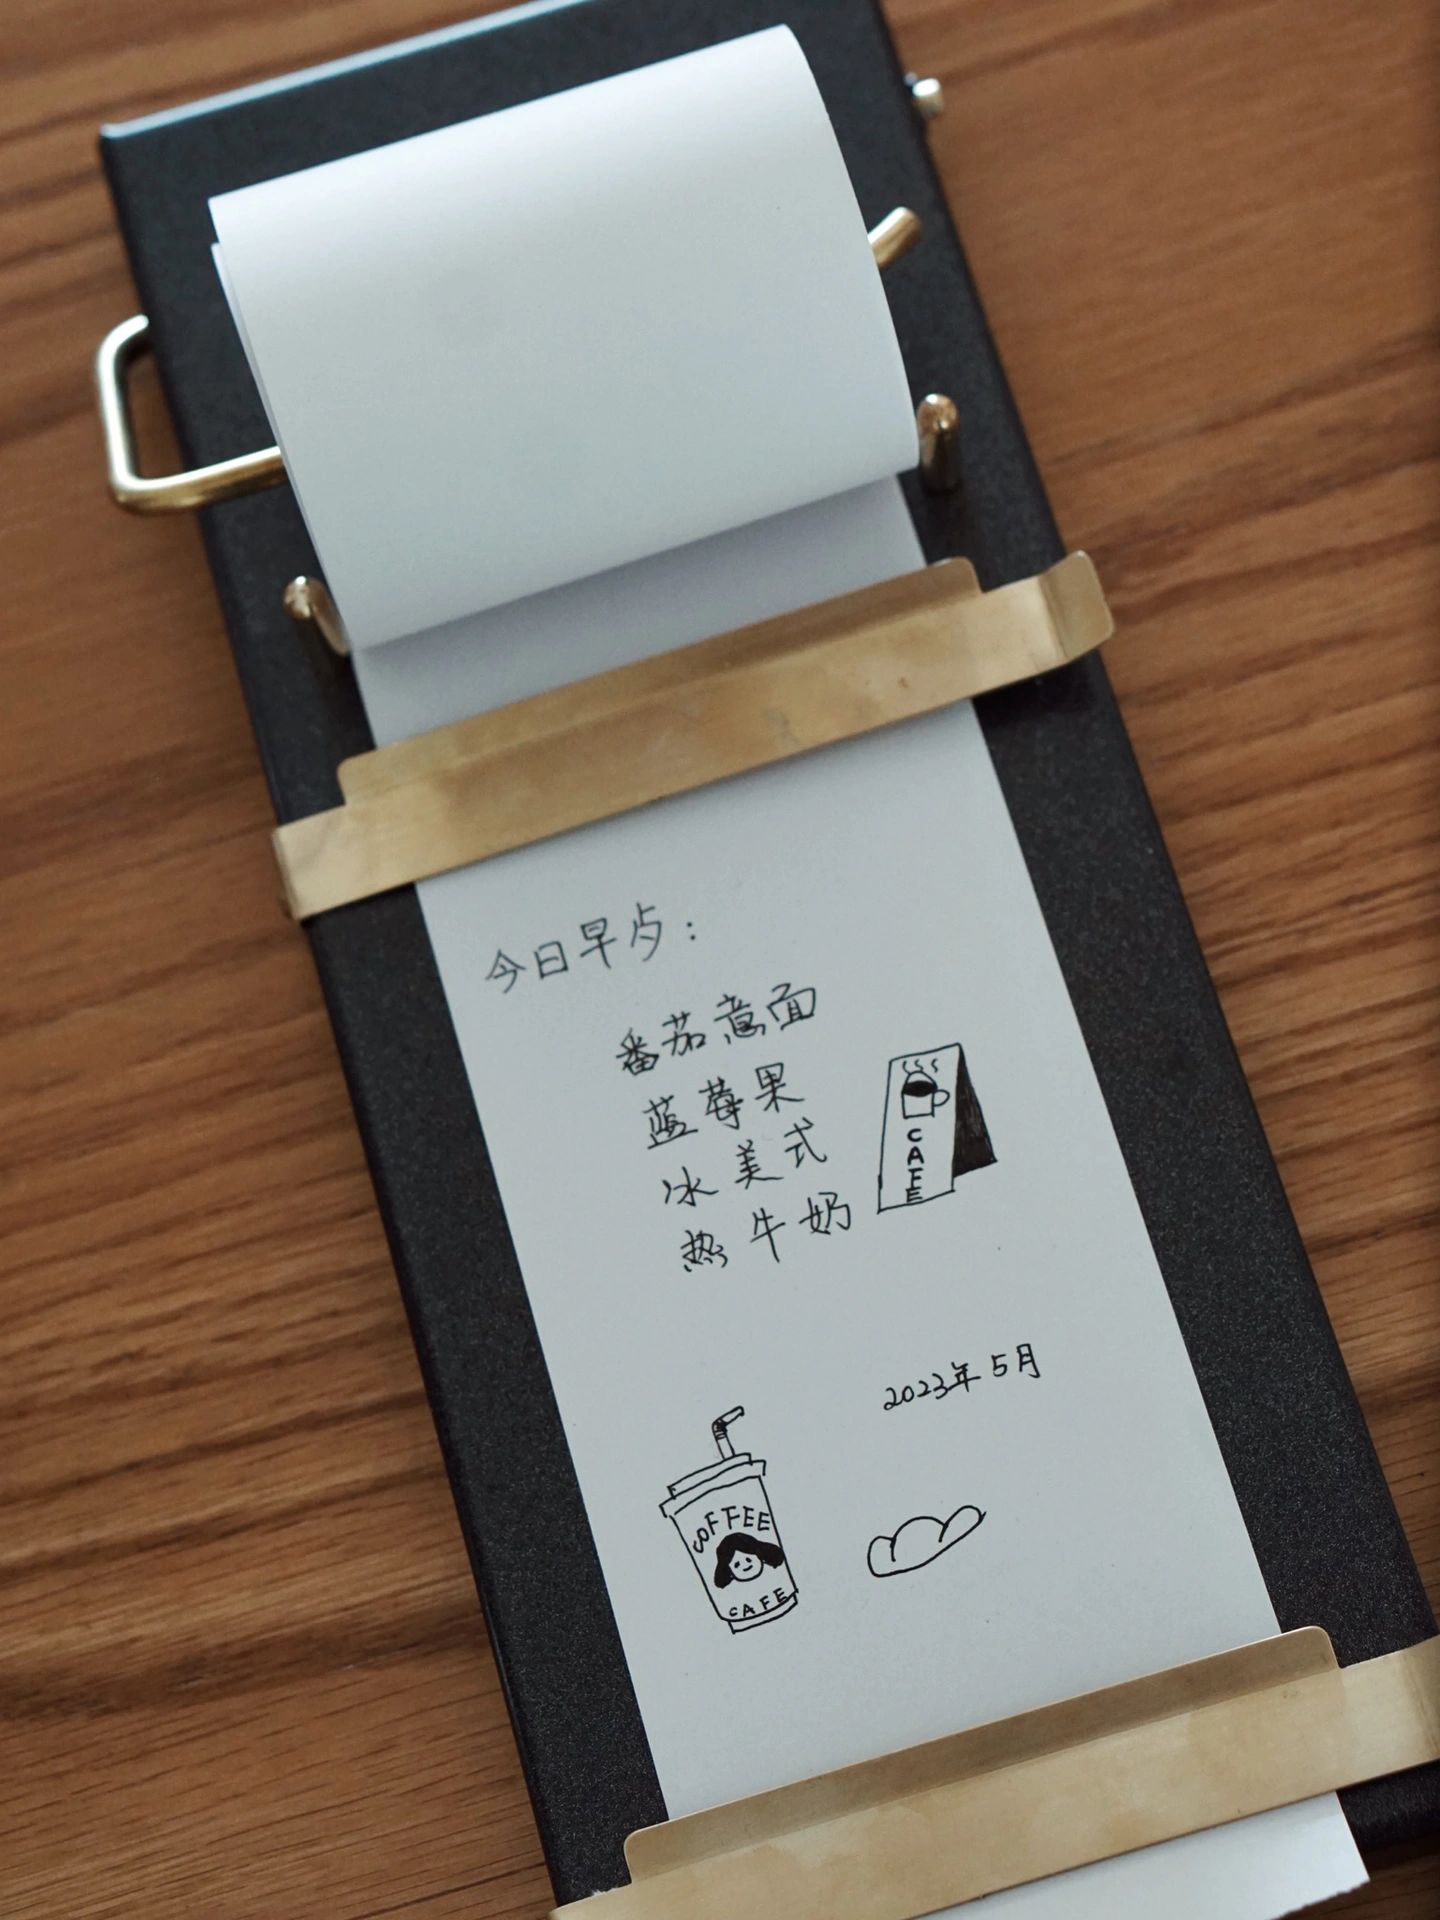 今日早歺：
番茄意面
蓝莓果
冰美式
热牛奶
CAFE
2023年5月
COFFEE
CAFE